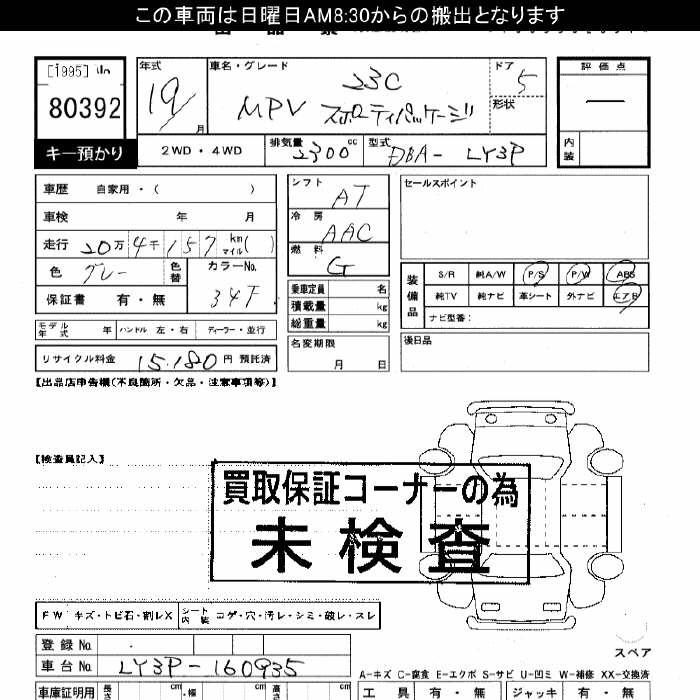 この車両は日曜日AM8:30からの搬出となります
[1995]
80392
キー預かり
年式
19
月
車名・グレード
23C
MPV スポーティパッケージ
ドア
5
形状
評価点
―
内装
2WD・4WD
排気量
2300
cc
型式
DBA- LY3P
車歴 自家用・( )
車検 年 月
走行 20万4千157 km マイル( )
色 グレー
色替
カラーNo.
34F
保証書 有・無
シフト
AT
冷房
AAC
燃料
G
乗車定員 名
積載量 kg
総重量 kg
名変期限
月 日
セールスポイント
装備品
S/R 純A/W P/S P/W ABS
純TV 純ナビ 革シート 外ナビ エアB
ナビ型番:
後日品
モデル年式 年 ハンドル 左・右 ディーラー・並行
リサイクル料金 15,180 円 預託済
【出品店申告欄(不良箇所・欠品・注意事項等)】
【検査員記入】
買取保証コーナーの為
未検査
FW キズ・トビ石・割レX シート内装 コゲ・穴・汚レ・シミ・破レ・スレ
スペア
登録No
車台No LY3P-160935
A-キズ C-腐食 E-エクボ S-サビ U-凹ミ W-補修 XX-交換済
車庫証明用 長さ cm 幅 cm 高さ cm
工具 有・無 ジャッキ 有・無